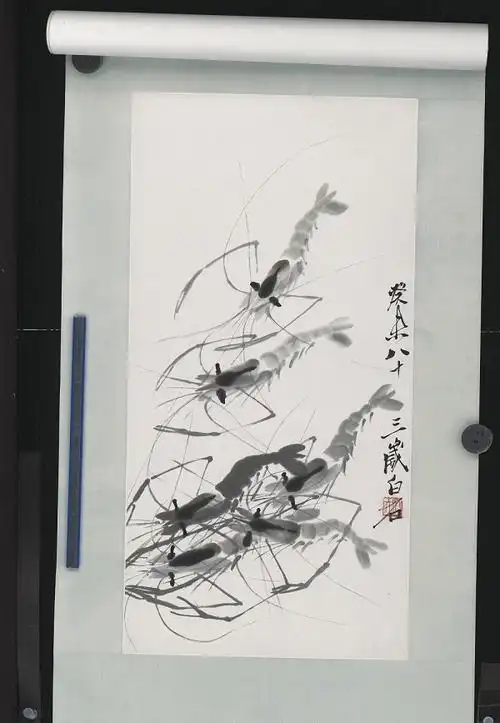 癸未八十三歲白石